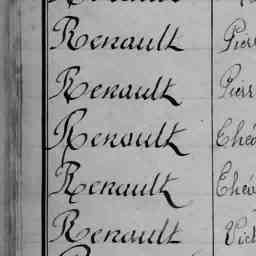 Renault Pier
Renault Pierr
Renault Théo
Renault Théo
Renault Vict